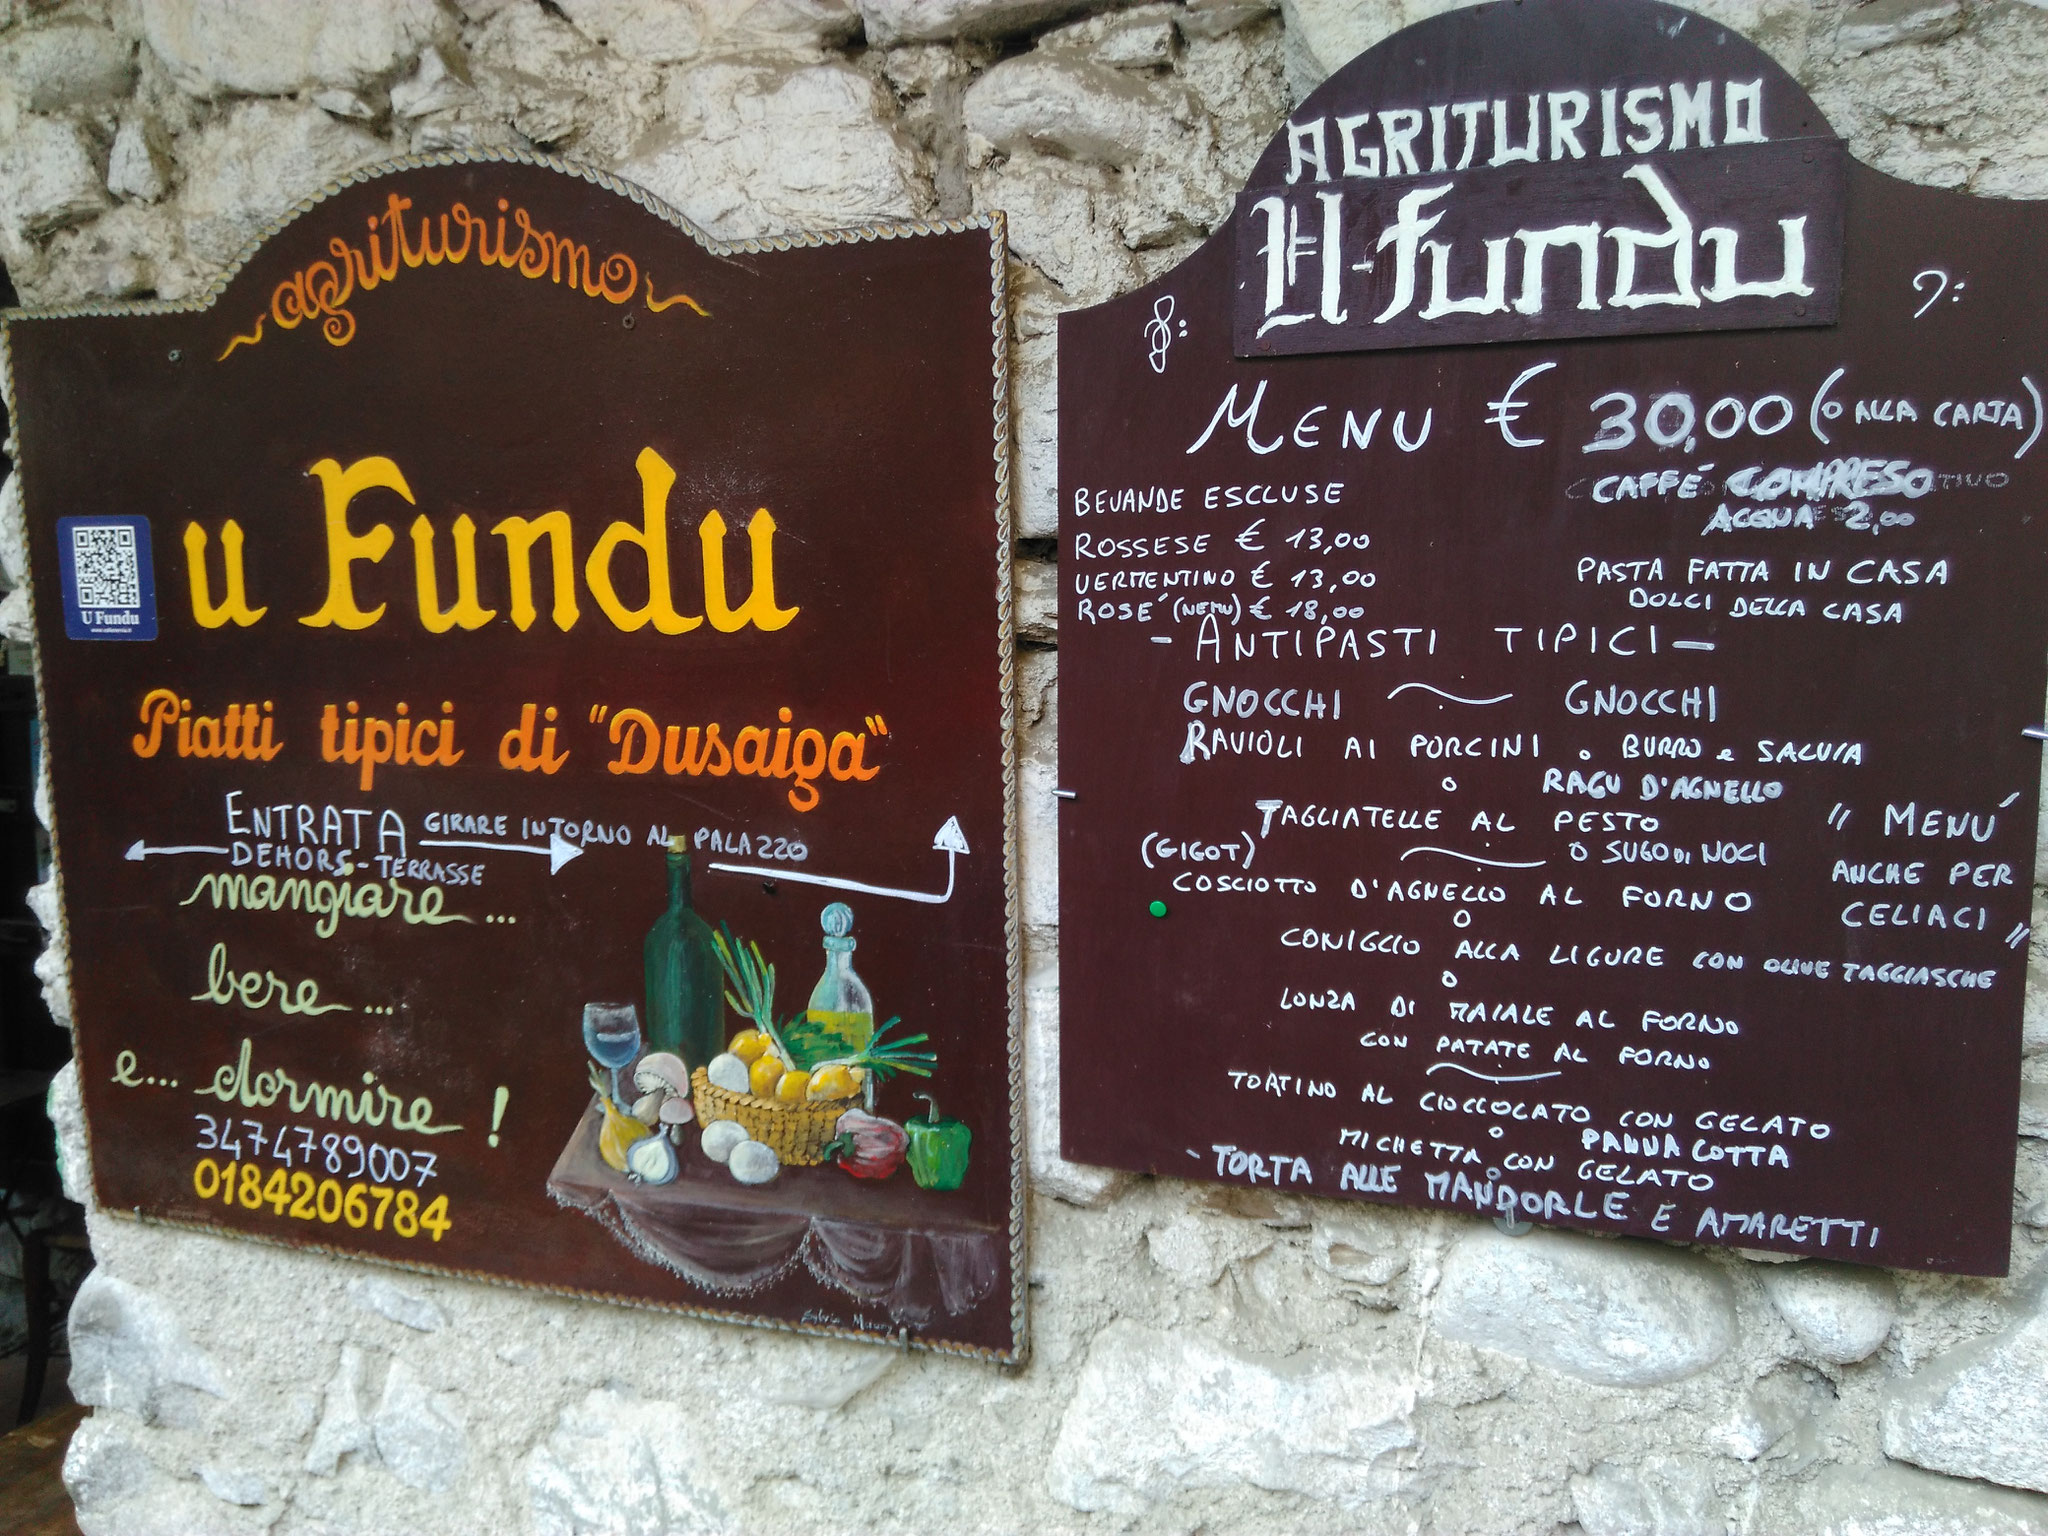 agriturismo
u Fundu
U Fundu
Piatti tipici di "Dusaiga"
ENTRATA GIRARE INTORNO AL PALAZZO
DEHORS - TERRASSE
mangiare...
bere...
e... dormire!
3474789007
0184206784
AGRITURISMO
U Fundu
MENU € 30,00 (O ALLA CARTA)
CAFFÉ COMPRESO
ACQUA 2,00
BEVANDE ESCLUSE
ROSSESE € 13,00
VERMENTINO € 13,00
ROSE' (NEMU) € 18,00
PASTA FATTA IN CASA
DOLCI DELLA CASA
- ANTIPASTI TIPICI -
GNOCCHI GNOCCHI
RAVIOLI AI PORCINI o BURRO e SALVIA
O RAGU D'AGNELLO
TAGLIATELLE AL PESTO
O SUGO DI NOCI
(GIGOT)
COSCIOTTO D'AGNELLO AL FORNO
O
CONIGLIO ALLA LIGURE CON OLIVE TAGGIASCHE
O
LONZA DI MAIALE AL FORNO
CON PATATE AL FORNO
" MENÚ
ANCHE PER
CELIACI "
TORTINO AL CIOCCOLATO CON GELATO
o PANNA COTTA
MICHETTA CON GELATO
- TORTA ALLE MANDORLE E AMARETTI